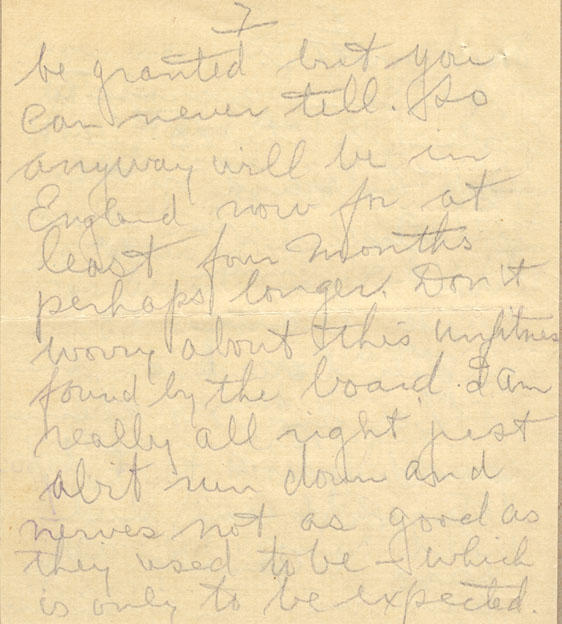 7
be granted but you
can never tell. So
anyway will be in
England now for at
least four months
perhaps longer. Don't
worry about this unfitness
found by the board. I am
really all right just
abit run down and
nerves not as good as
they used to be – which
is only to be expected.